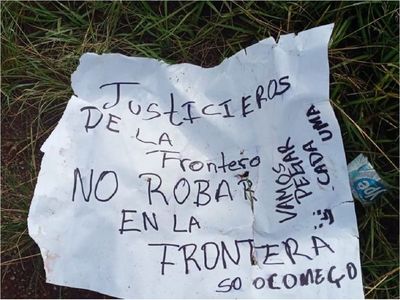 JUSTICIEROS
DE LA
Frontero
NO ROBAR
EN LA
FRONTERA
VAMOS
DEGAR
CADA UMA